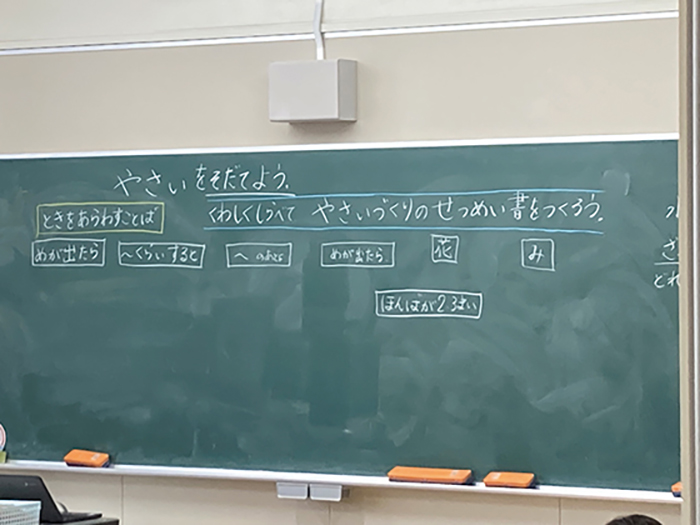 やさいをそだてよう。
くわしくしらべて やさいづくりのせつめい書をつくろう。
ときをあらわすことば
めが出たら ～くらいすると ～のあと めが出たら 花 み
ほんばが23まい